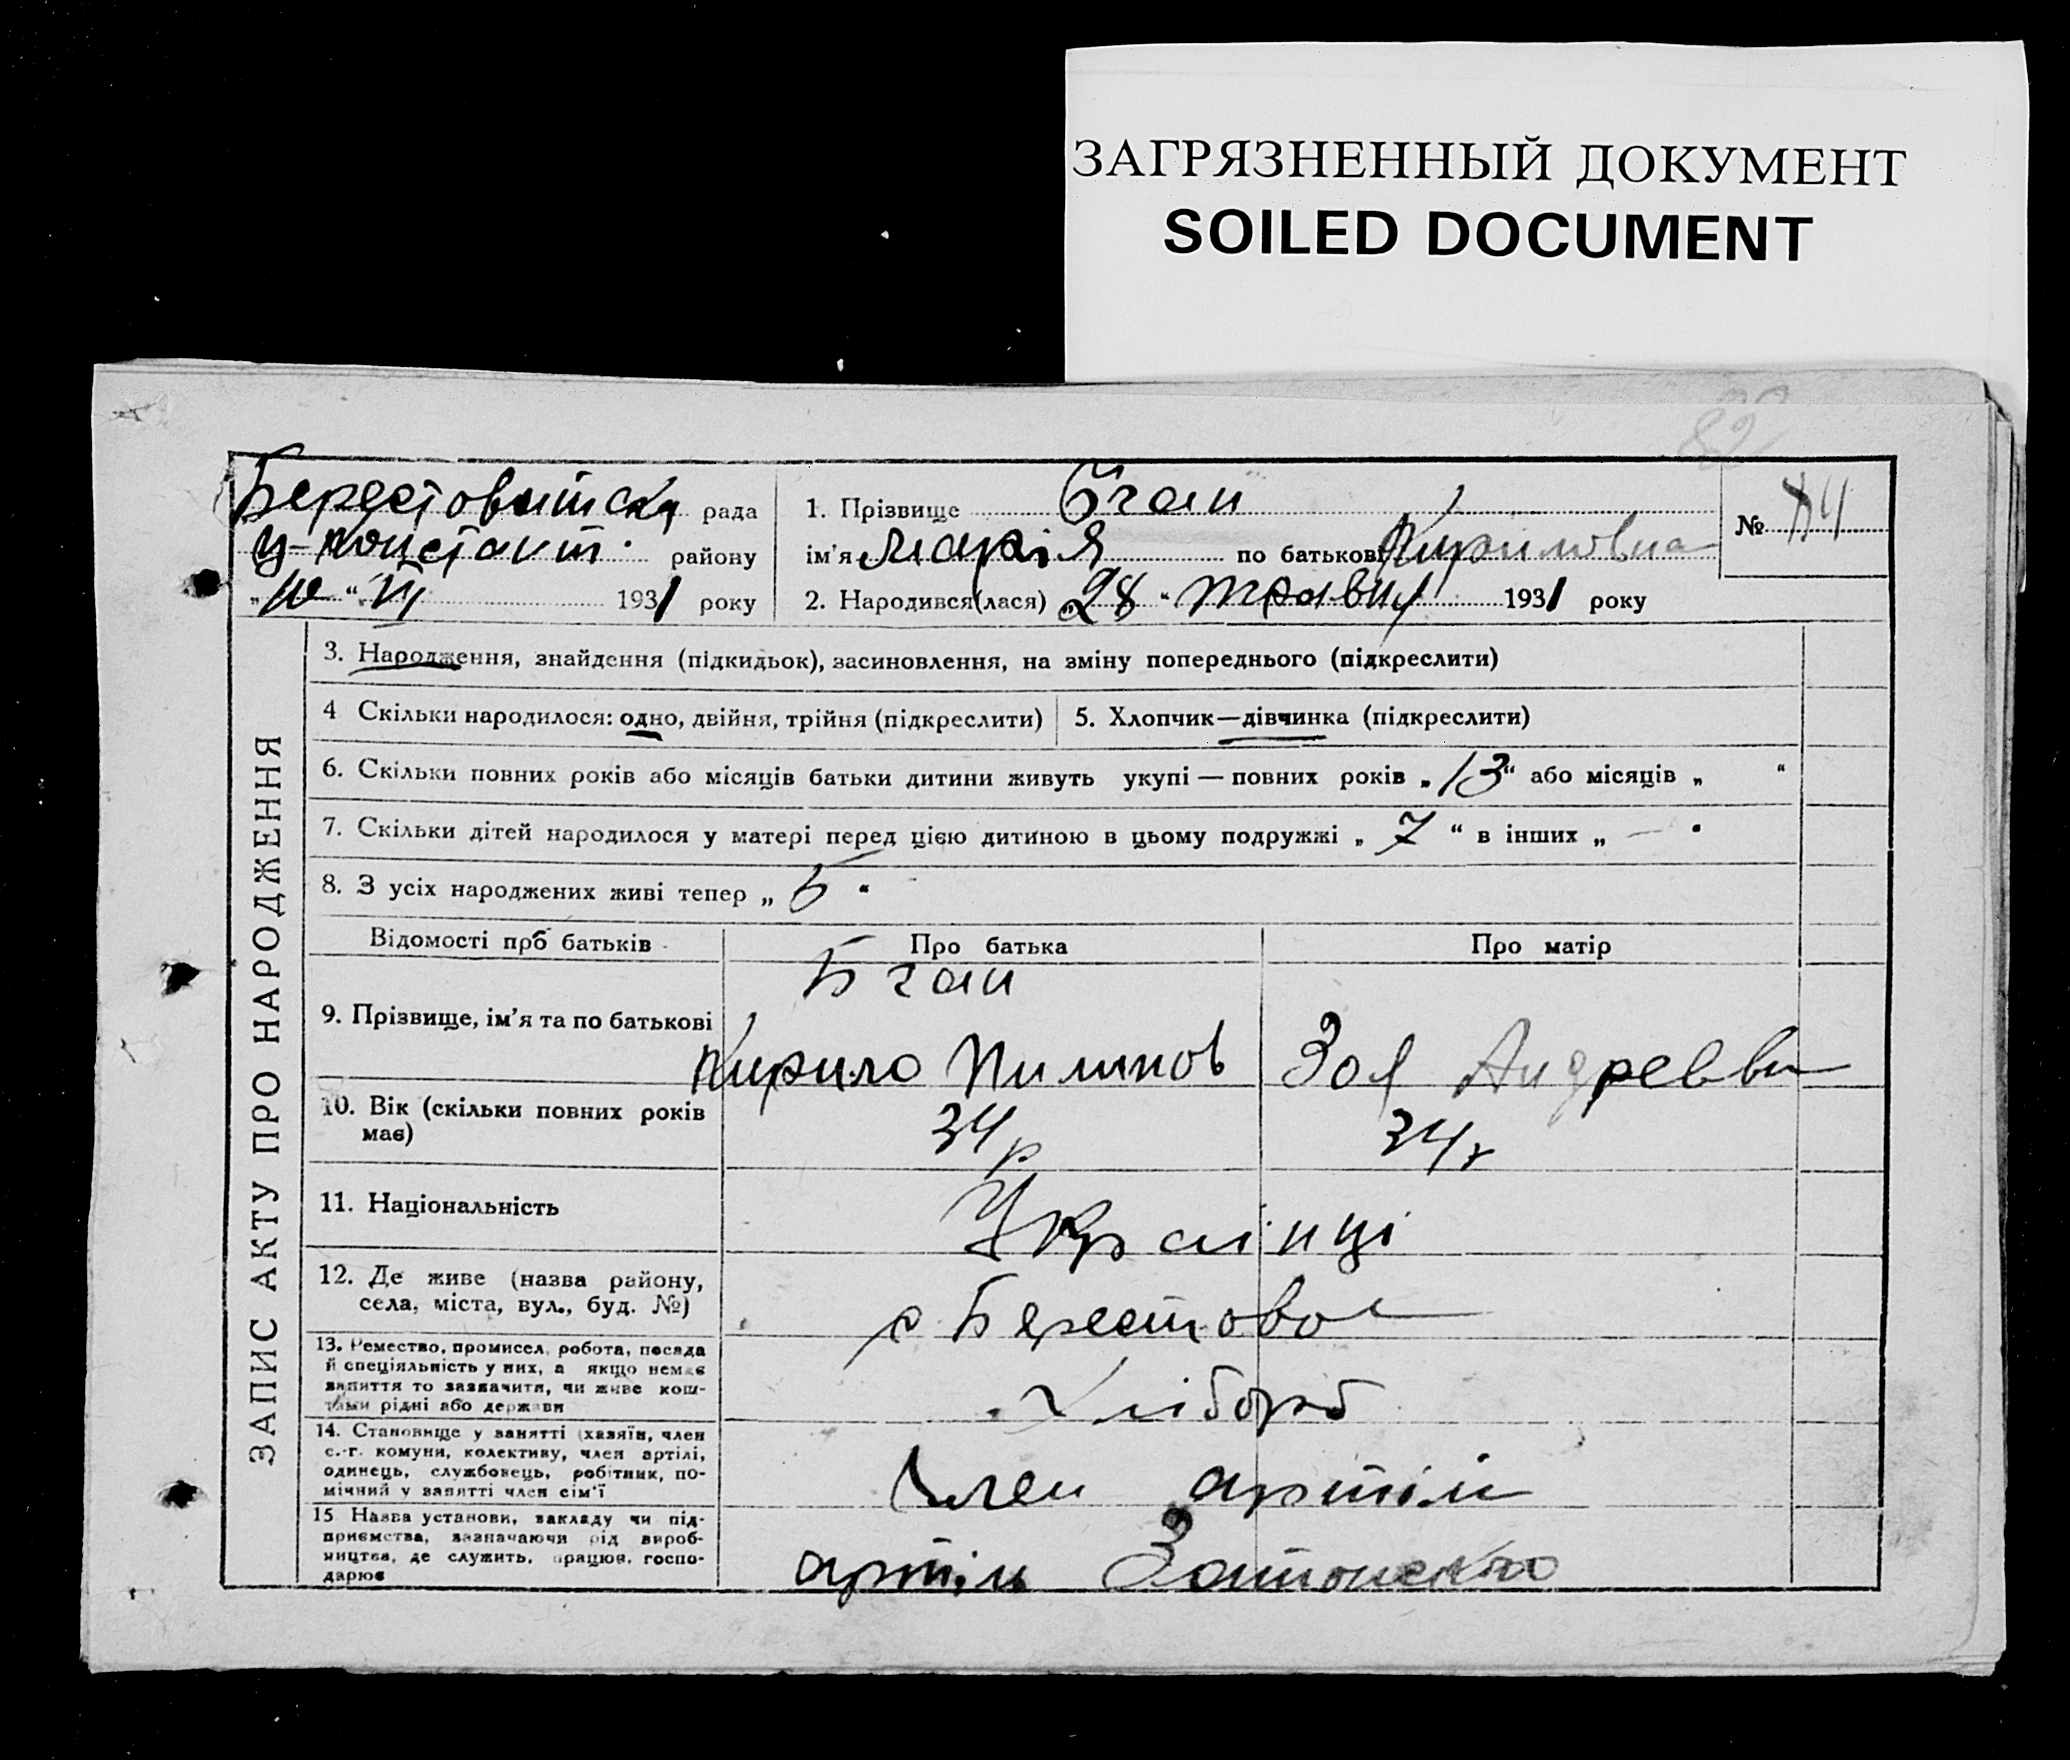 ЗАГРЯЗНЕННЫЙ ДОКУМЕНТ
SOILED DOCUMENT
82
Берестовитська рада
Ц-Констант. району
„10“ VI 1931 року
1. Прізвище Бган
ім'я Марія по батькові Кириловна
2. Народився(лася) „28“ травня 1931 року
№ 84
ЗАПИС АКТУ ПРО НАРОДЖЕННЯ
3. Народження, знайдення (підкидьок), засиновлення, на зміну попереднього (підкреслити)
4 Скільки народилося: одно, двійня, трійня (підкреслити)
5. Хлопчик—дівчинка (підкреслити)
6. Скільки повних років або місяців батьки дитини живуть укупі — повних років „13“ або місяців „ “
7. Скільки дітей народилося у матері перед цією дитиною в цьому подружжі „7“ в інших „—“
8. З усіх народжених живі тепер „5“
Відомості про батьків
Про батька
Про матір
9. Прізвище, ім'я та по батькові
Бган
Кирило Пилипов
Зоя Андреевн
10. Вік (скільки повних років має)
34 р
34 г
11. Національність
Українці
12. Де живе (назва району, села, міста, вул., буд. №)
с Берестовое
13. Ремество, промисел, робота, посада й спеціяльність у них, а якщо немає заняття то зазначити, чи живе коштами рідні або держави
Хлібороб
14. Становище у занятті (хазяїн, член с.-г. комуни, колективу, член артілі, одинець, службовець, робітник, помічний у занятті член сім'ї
Член артіли
15 Назва установи, закладу чи підприємства, зазначаючи рід виробництва, де служить, працює, господарює
артіль Затонского